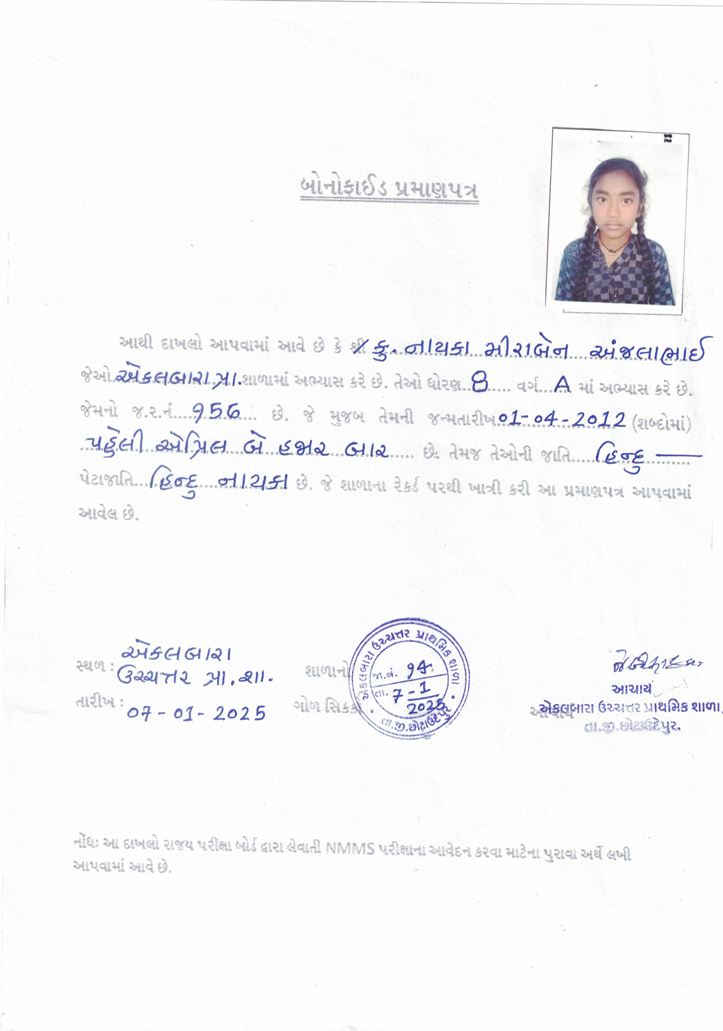 બોનોફાઈડ પ્રમાણપત્ર
આથી દાખલો આપવામાં આવે છે કે શ્રી/કુ. નાયકા મીરાબેન અંજલાભાઈ
જેઓ એકલબારા પ્રા. શાળામાં અભ્યાસ કરે છે. તેઓ ધોરણ 8 વર્ગ A માં અભ્યાસ કરે છે.
જેમનો જ.ર.નં. 956 છે. જે મુજબ તેમની જન્મતારીખ 01-04-2012 (શબ્દોમાં)
પહેલી એપ્રિલ બે હજાર બાર છે. તેમજ તેઓની જાતિ હિન્દુ —
પેટાજાતિ હિન્દુ નાયકા છે. જે શાળાના રેકર્ડ પરથી ખાત્રી કરી આ પ્રમાણપત્ર આપવામાં
આવેલ છે.
સ્થળ : એકલબારા
ઉચ્ચત્તર પ્રા. શા.
તારીખ : 07-01-2025
શાળાનો
ગોળ સિક્કો
એકલબારા ઉચ્ચત્તર પ્રાથમિક શાળા
જા.નં. 94
તા. 7-1
2025
તા.જી.છોટાઉદેપુર
આચાર્ય
આચાર્ય
એકલબારા ઉચ્ચત્તર પ્રાથમિક શાળા
તા.જી.છોટાઉદેપુર.
નોંધઃ આ દાખલો રાજ્ય પરીક્ષા બોર્ડ દ્વારા લેવાતી NMMS પરીક્ષાના આવેદન કરવા માટેના પુરાવા અર્થે લખી
આપવામાં આવે છે.